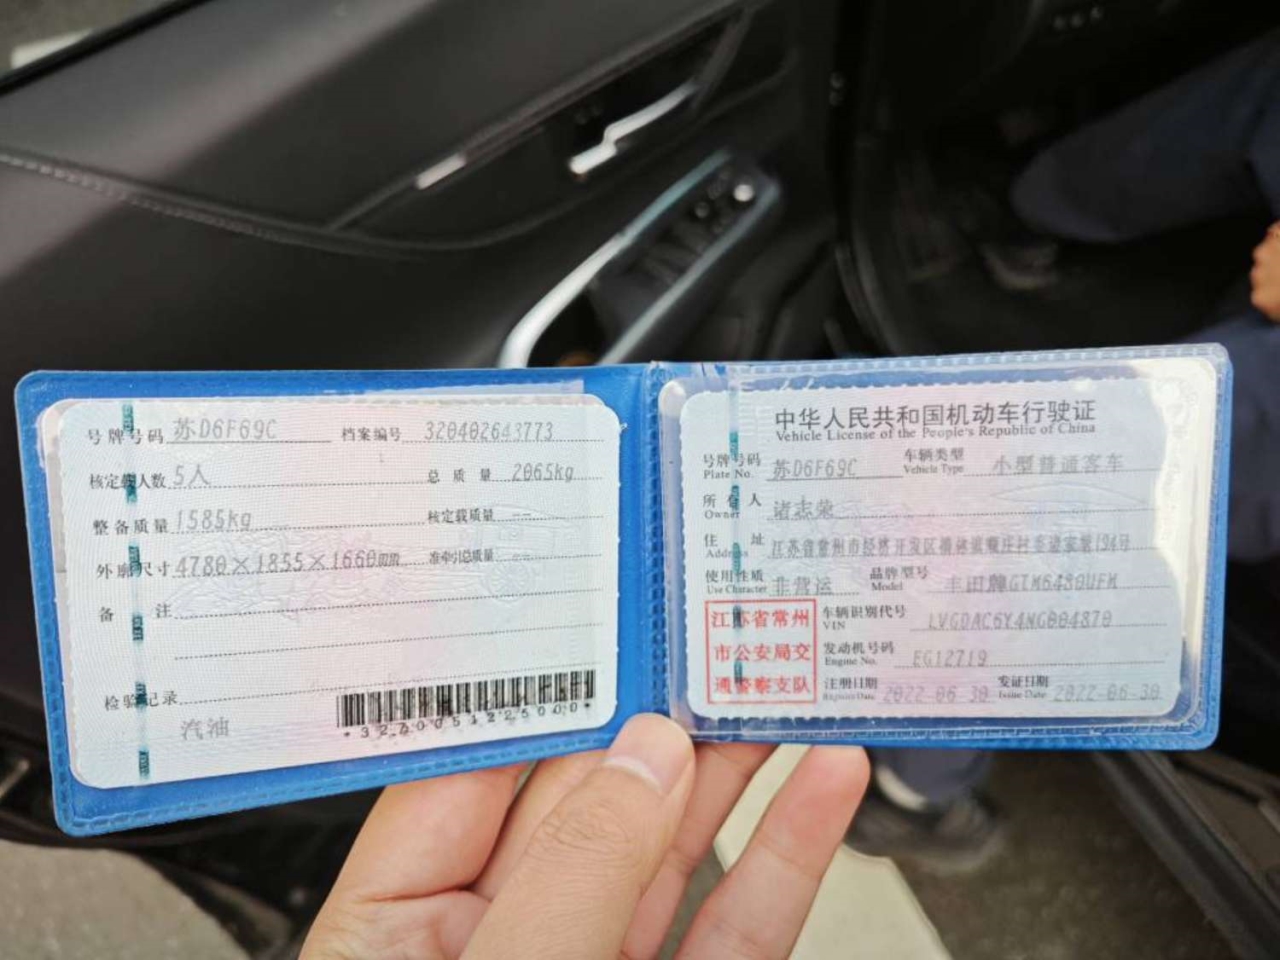 号牌号码 苏D6F69C 档案编号 320402643773
核定载人数 5人 总质量 2065kg
整备质量 1585kg 核定载质量 --
外廓尺寸 4780×1855×1660mm 准牵引总质量 --
备注
检验记录
汽油
*3200051225000*
中华人民共和国机动车行驶证
Vehicle License of the People's Republic of China
号牌号码 苏D6F69C 车辆类型 小型普通客车
Plate No. Vehicle Type
所有人 诸志荣
Owner
住址 江苏省常州市经济开发区横林镇顺庄村委诸家塘194号
Address
使用性质 非营运 品牌型号 丰田牌GTM6480UFM
Use Character Model
江苏省常州
市公安局交
通警察支队
车辆识别代号 LVGDAC6Y4NG004870
VIN
发动机号码 EG12719
Engine No.
注册日期 2022-06-30 发证日期 2022-06-30
Register Date Issue Date